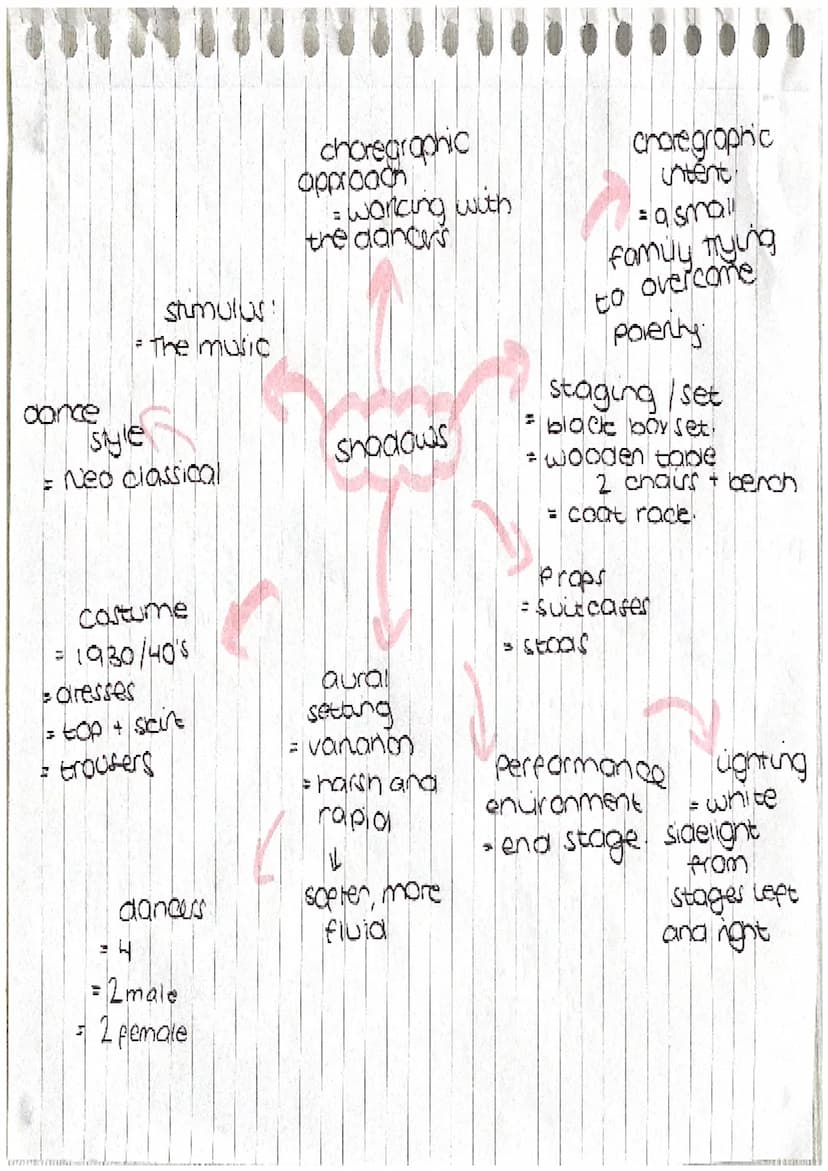 choregraphic
approach
= working with
the dancers
choregraphic
intent.
= a small
family trying
to overcome
poverty.
stimulus:
= The music
shadows
dance
style
= Neo classical
staging / set
= black box set.
= wooden table
2 chairs + bench
= coat race.
Props
= suitcases
= stools
costume
= 1930/40's
= dresses
= top + skirt
= trousers
aural
setting
= variation
= harsh and
rapid
↓
softer, more
fluid
performance
environment
= end stage.
Lighting
= white
sidelight
from
stages left
and right
dancers
= 4
= 2 male
= 2 female